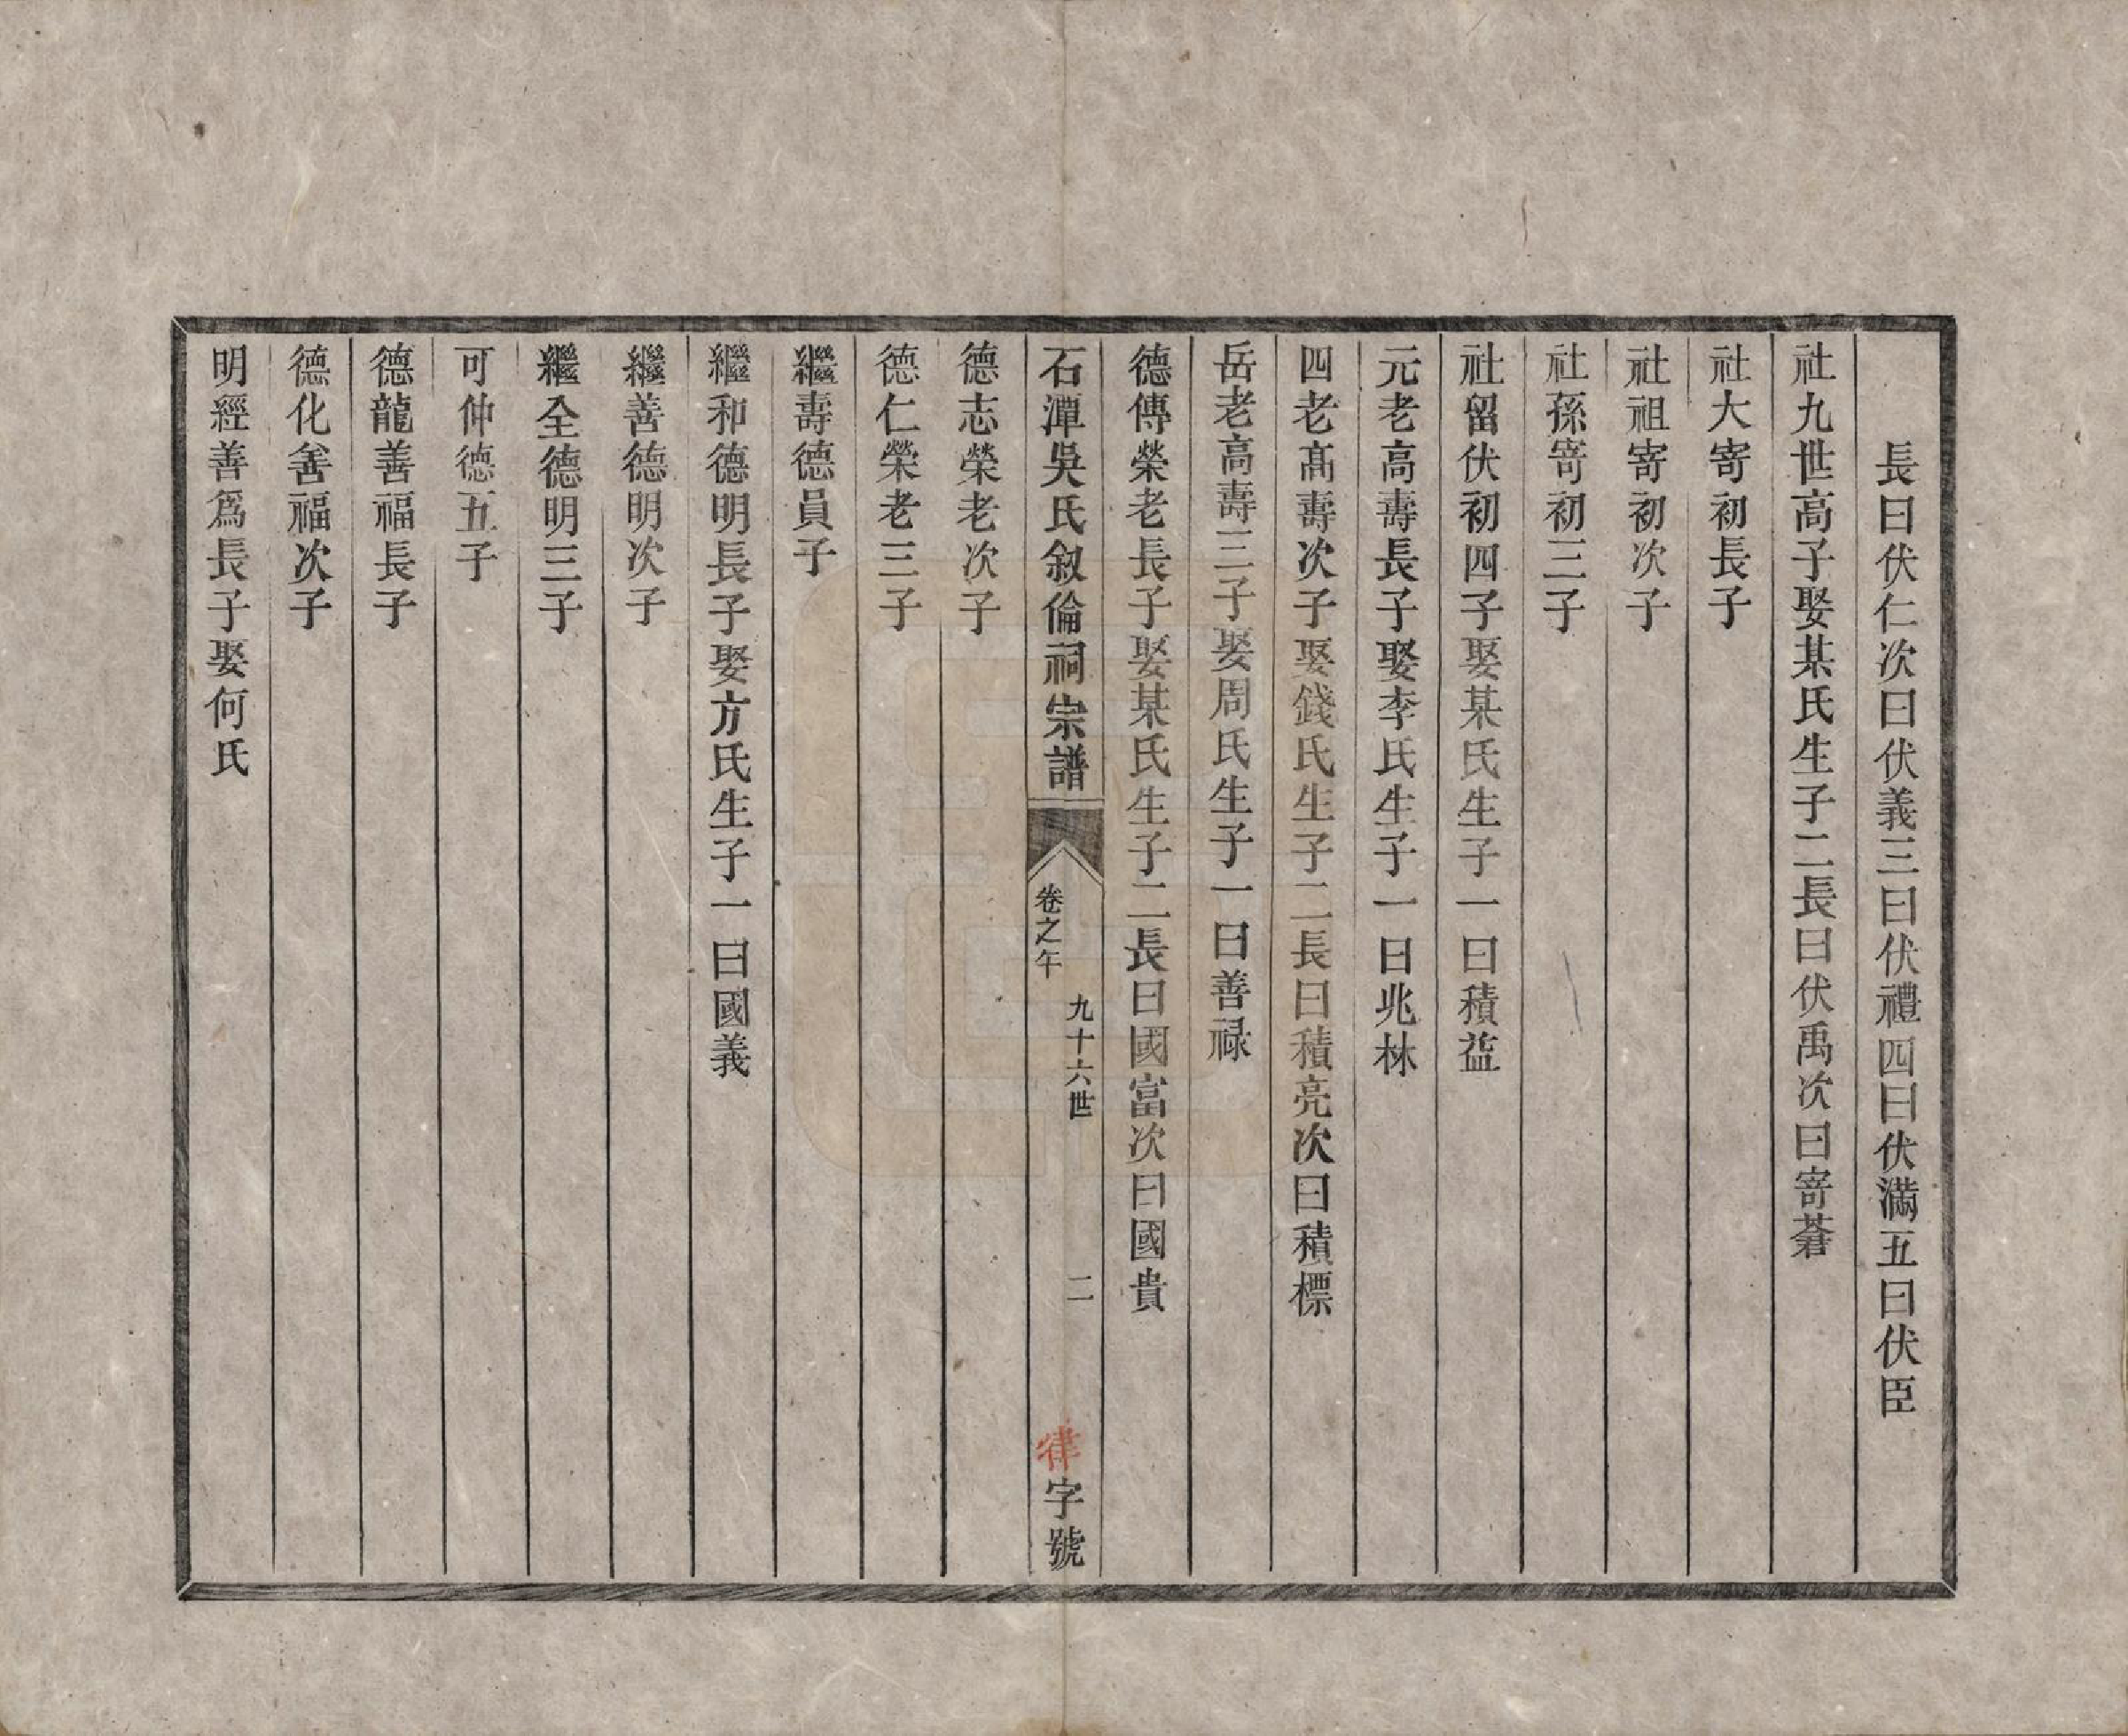 長曰伏仁次曰伏義三曰伏禮四曰伏滿五曰伏臣
社九世高子娶某氏生子二長曰伏禹次曰寄養
社大寄初長子
社祖寄初次子
社孫寄初三子
社留伏初四子娶某氏生子一曰積益
元老高壽長子娶李氏生子一曰兆林
四老髙壽次子娶錢氏生子二長曰積亮次曰積標
岳老高壽三子娶周氏生子一曰善禄
德傳榮老長子娶某氏生子二長曰國富次曰國貴
石潭吳氏敘倫祠宗譜
卷之午
九十六世
二
律字號
德志榮老次子
德仁榮老三子
繼壽德員子
繼和德明長子娶方氏生子一曰國義
繼善德明次子
繼全德明三子
可仲德五子
德龍善福長子
德化善福次子
明經善爲長子娶何氏